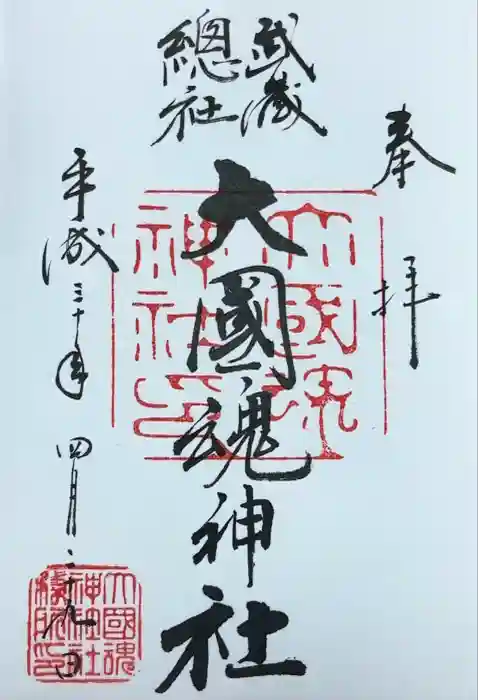 奉拝
武蔵
總社
大國魂神社
平成三十年 四月二十九日
大國魂神社印
大國魂
神社